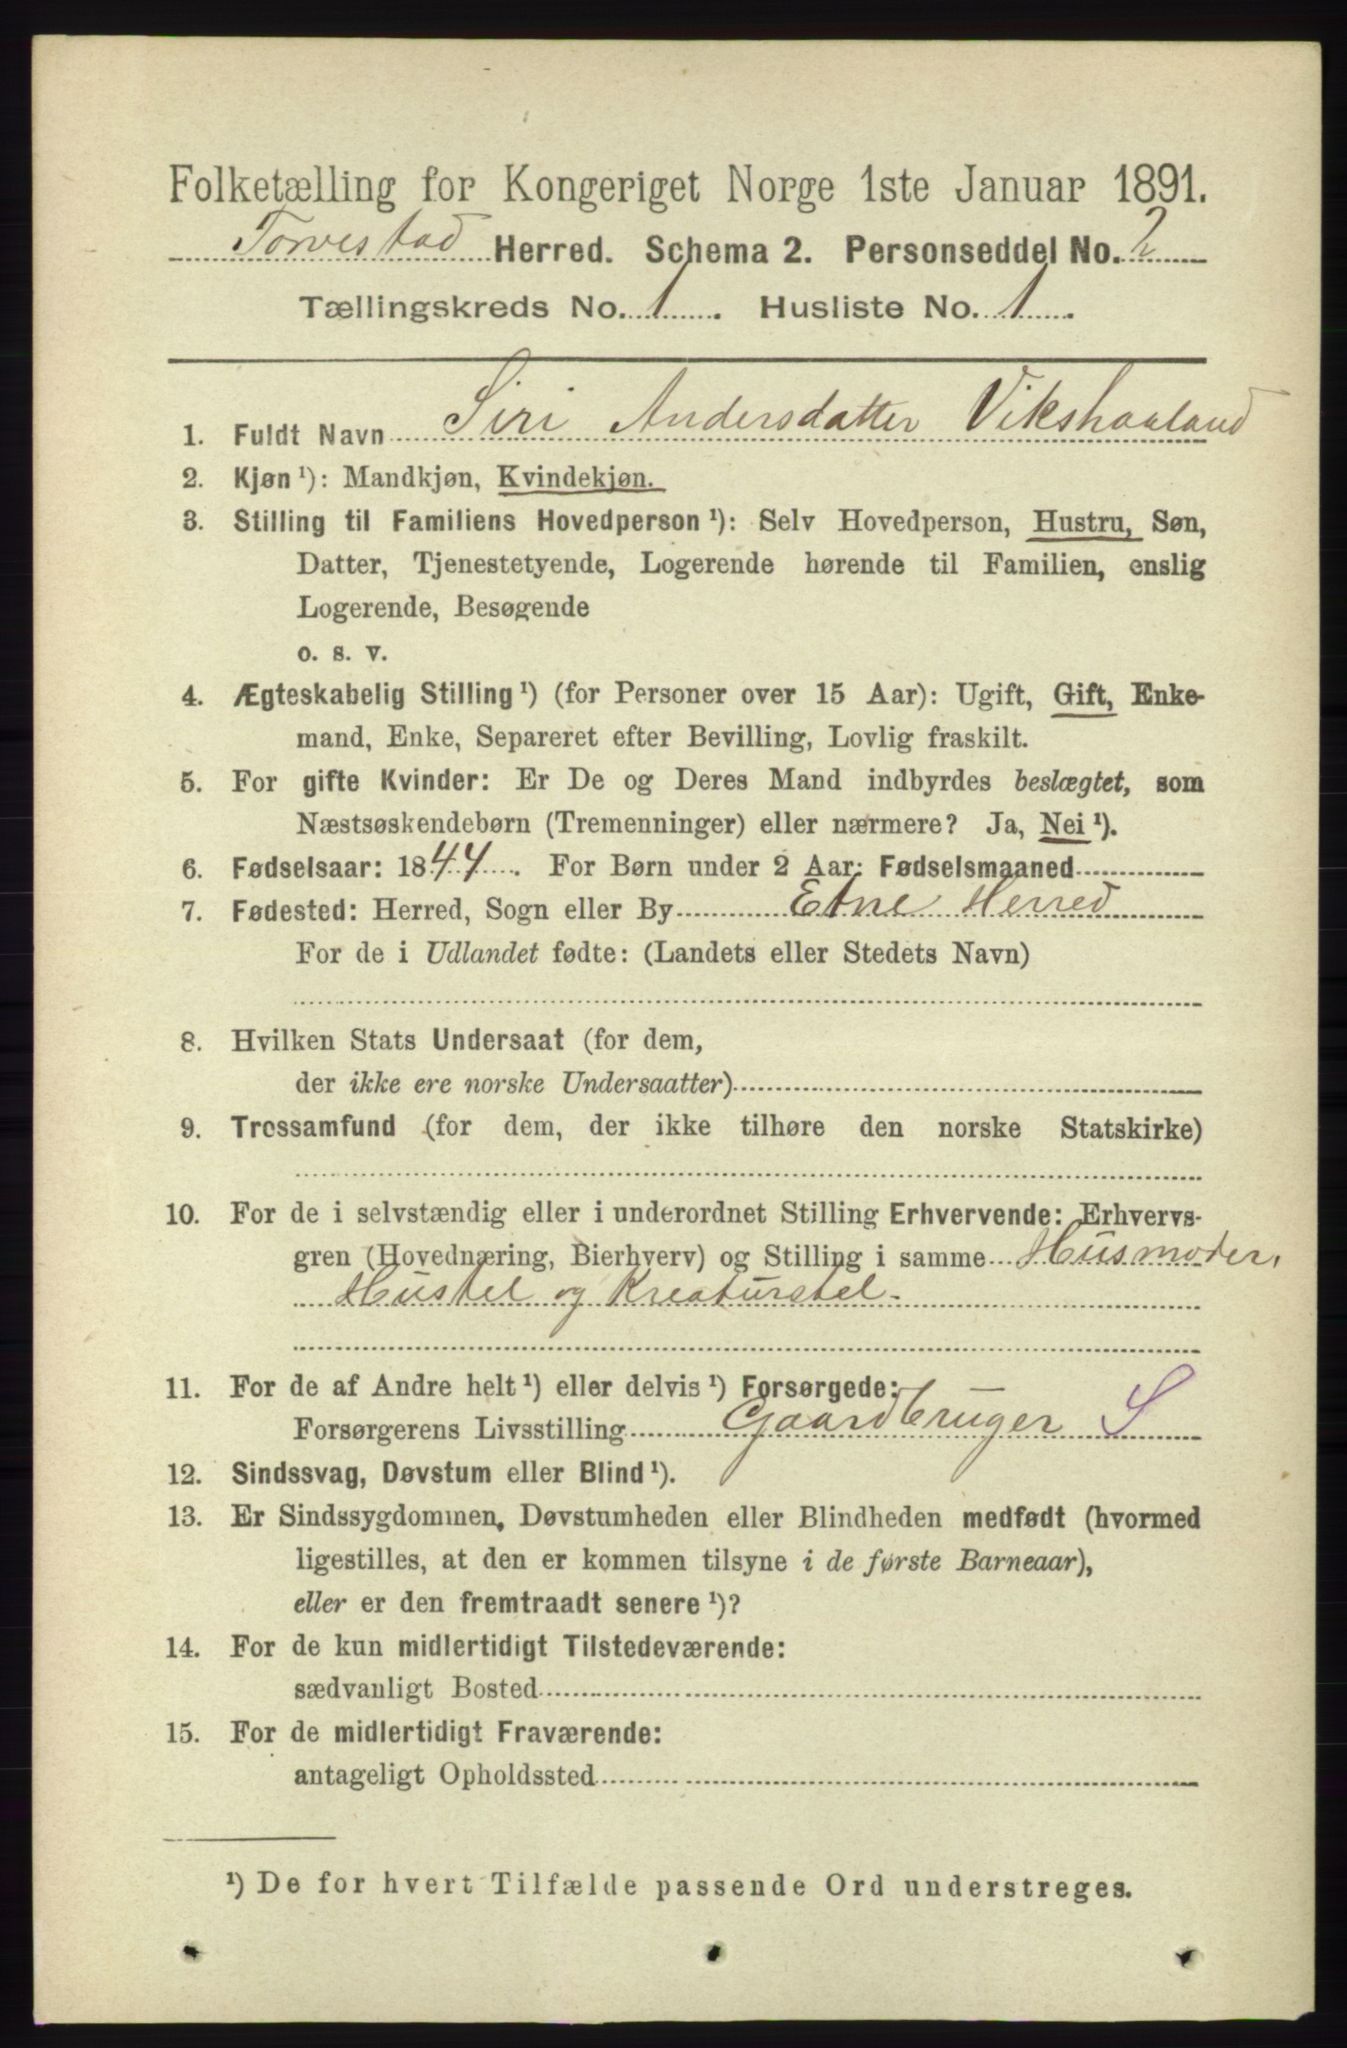 Folketælling for Kongeriget Norge 1ste Januar 1891.
Torvestad Herred. Schema 2. Personseddel No. 2
Tællingskreds No. 1. Husliste No. 1.
1. Fuldt Navn Siri Andersdatter Vikshaaland
2. Kjøn ¹): Mandkjøn, Kvindekjøn.
3. Stilling til Familiens Hovedperson ¹): Selv Hovedperson, Hustru, Søn,
Datter, Tjenestetyende, Logerende hørende til Familien, enslig
Logerende, Besøgende
o. s. v.
4. Ægteskabelig Stilling ¹) (for Personer over 15 Aar): Ugift, Gift, Enke-
mand, Enke, Separeret efter Bevilling, Lovlig fraskilt.
5. For gifte Kvinder: Er De og Deres Mand indbyrdes beslægtet, som
Næstsøskendebørn (Tremenninger) eller nærmere? Ja, Nei ¹).
6. Fødselsaar: 1844. For Børn under 2 Aar: Fødselsmaaned
7. Fødested: Herred, Sogn eller By Etne Herred
For de i Udlandet fødte: (Landets eller Stedets Navn)
8. Hvilken Stats Undersaat (for dem,
der ikke ere norske Undersaatter)
9. Trossamfund (for dem, der ikke tilhøre den norske Statskirke)
10. For de i selvstændig eller i underordnet Stilling Erhvervende: Erhvervs-
gren (Hovednæring, Bierhverv) og Stilling i samme Husmoder,
Hustel og Kreaturstel.
11. For de af Andre helt ¹) eller delvis ¹) Forsørgede:
Forsørgerens Livsstilling Gaardbruger S
12. Sindssvag, Døvstum eller Blind ¹).
13. Er Sindssygdommen, Døvstumheden eller Blindheden medfødt (hvormed
ligestilles, at den er kommen tilsyne i de første Barneaar),
eller er den fremtraadt senere ¹)?
14. For de kun midlertidigt Tilstedeværende:
sædvanligt Bosted
15. For de midlertidigt Fraværende:
antageligt Opholdssted
¹) De for hvert Tilfælde passende Ord understreges.